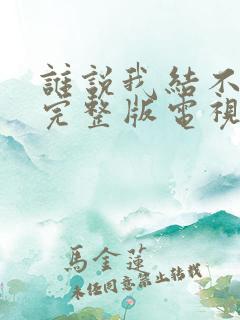 誰說我結不
完整版電視
馬金蓮
未經同意禁止轉載